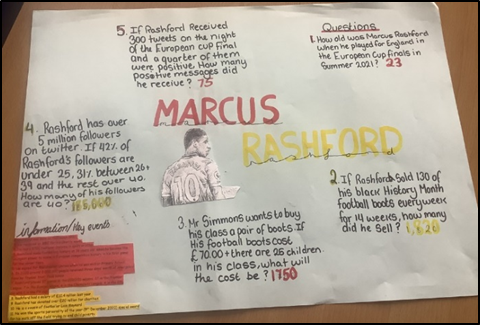 5. If Rashford Received
300 tweets on the night
of the European cup final
and a quarter of them
were positive. How many
positive messages did
he receive? 75
Questions
1. How old was Marcus Rashford
when he played for England in
the European Cup finals in
Summer 2021? 23
MARCUS
RASHFORD
rashford
4. Rashford has over
5 million followers
on twitter. If 42% of
Rashford's followers are
under 25, 31% between 26+
39 and the rest over 40.
How many of his followers
are 40?
10
2. If Rashford sold 130 of
his black History Month
football boots every week
for 14 weeks, how many
did he sell? 1,820
3. Mr Simmons wants to buy
his class a pair of boots. If
His football boots cost
£70.00 + there are 25 children
in his class, what will
the cost be? 1750
information/Key events